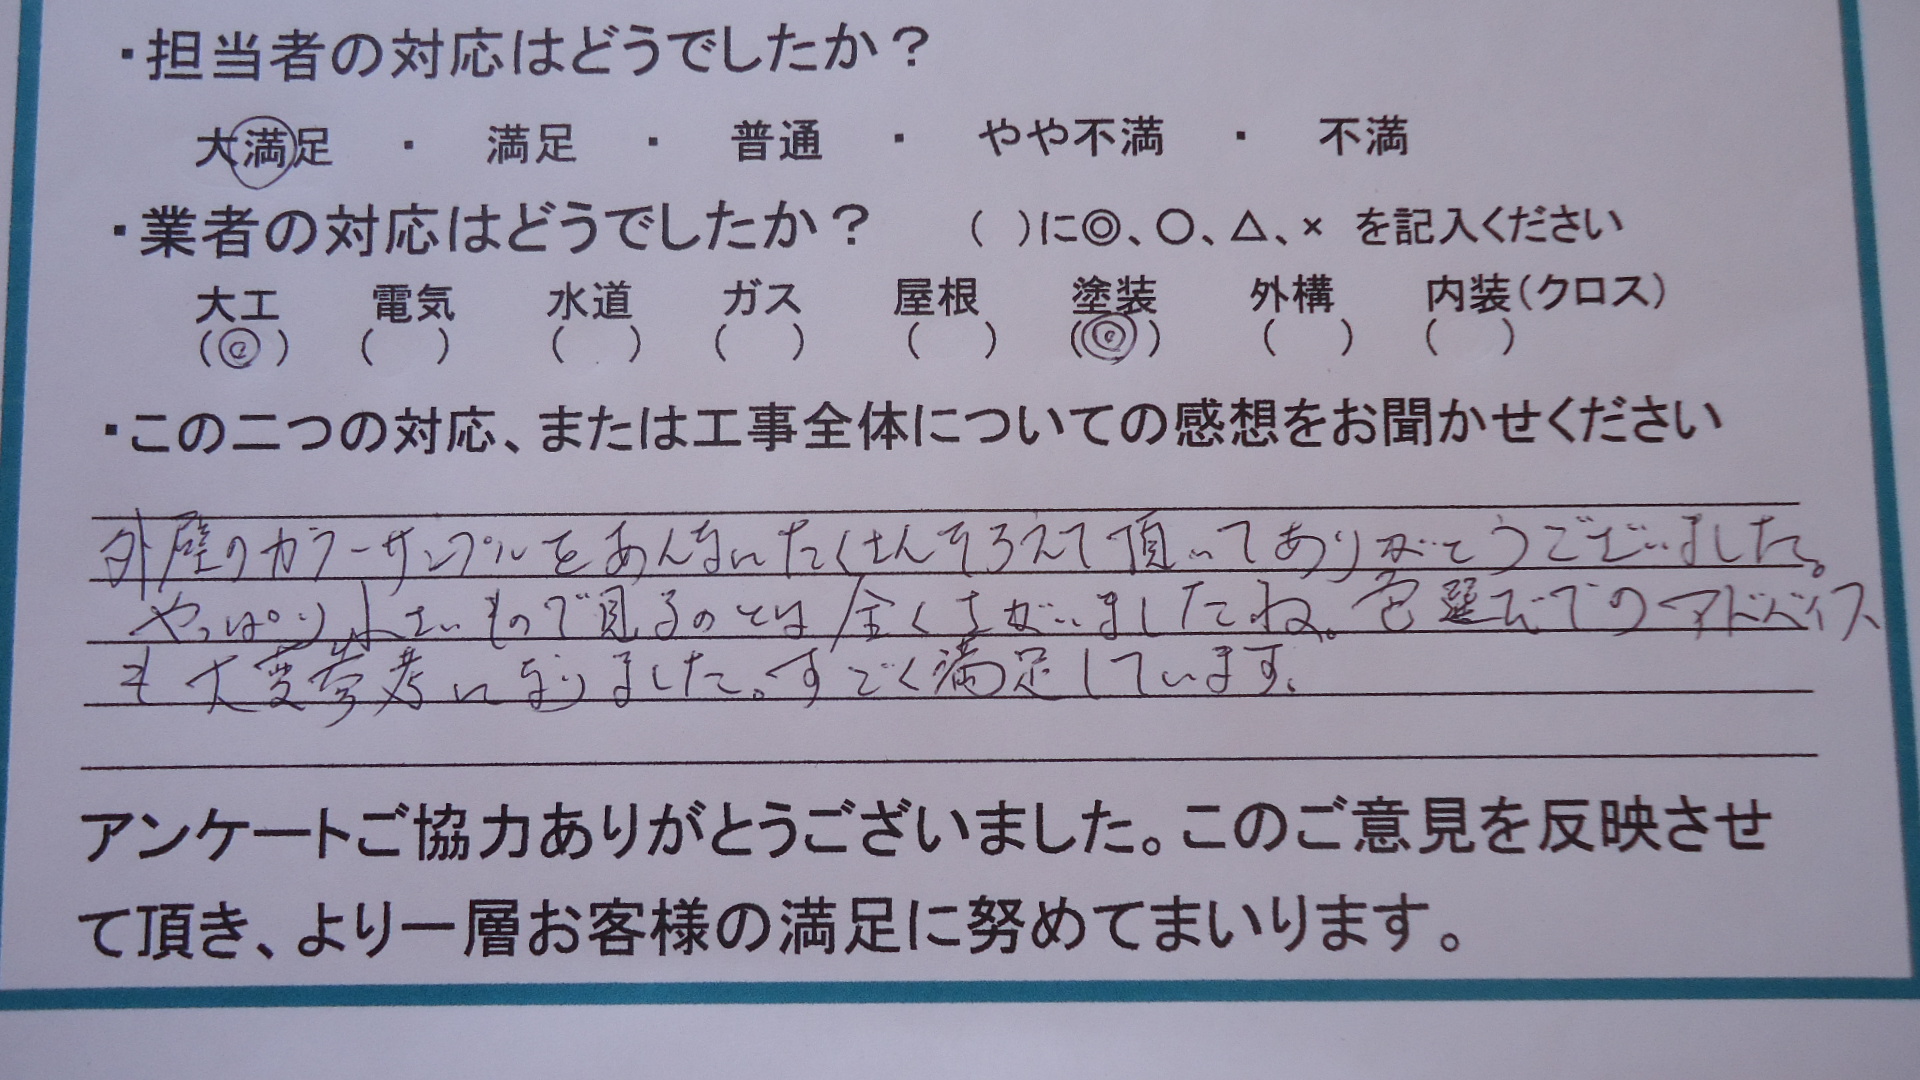 ・担当者の対応はどうでしたか？
大満足 ・ 満足 ・ 普通 ・ やや不満 ・ 不満
・業者の対応はどうでしたか？ （ ）に◎、○、△、× を記入ください
大工 電気 水道 ガス 屋根 塗装 外構 内装（クロス）
（◎） （ ） （ ） （ ） （ ） （◎） （ ） （ ）
・この二つの対応、または工事全体についての感想をお聞かせください
外壁のカラーサンプルをあんなにたくさんそろえて頂いてありがとうございました。
やっぱり小さいもので見るのとは全くちがいましたね。色選びでのアドバイス
も大変参考になりました。すごく満足しています。
アンケートご協力ありがとうございました。このご意見を反映させ
て頂き、より一層お客様の満足に努めてまいります。